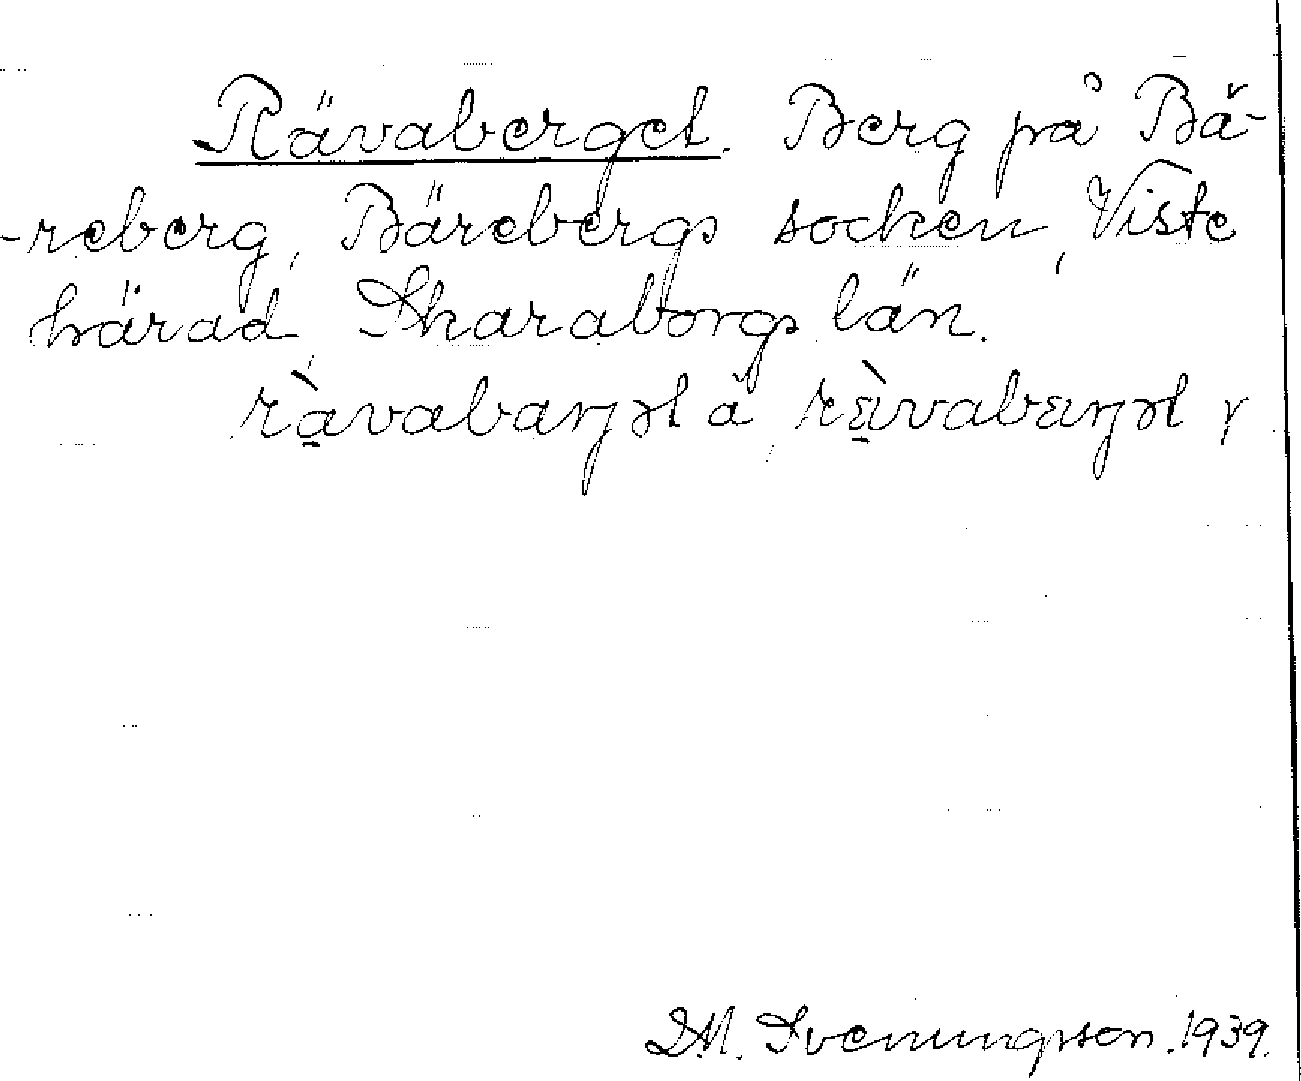 Rävaberget. Berg på Bä-
-reberg, Bärebergs socken, Viste
härad, Skaraborgs län.
ràvabaŋət å, rɛ̀vabɛŋət γ
D.M. Svenungsson. 1939.